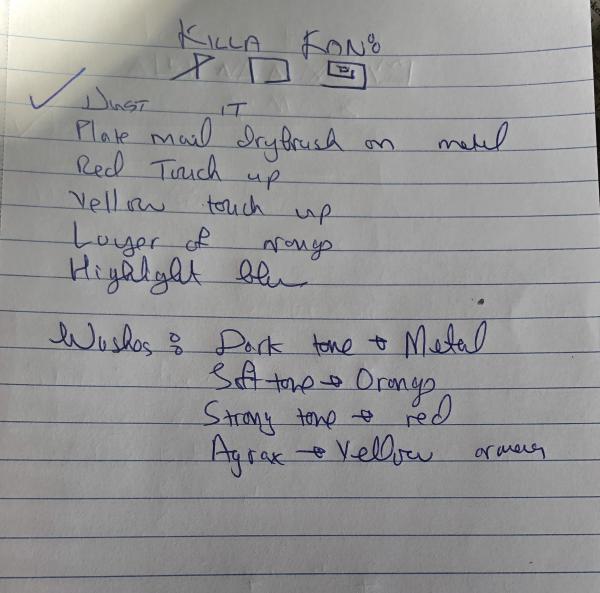 KILLA KAN:
Dust IT
Plate mail drybrush on metal
Red Touch up
Yellow touch up
Layer of orange
Highlight blu
Washes: Dark tone → Metal
Soft tone → Orange
Strong tone → red
Agrax → Yellow armour